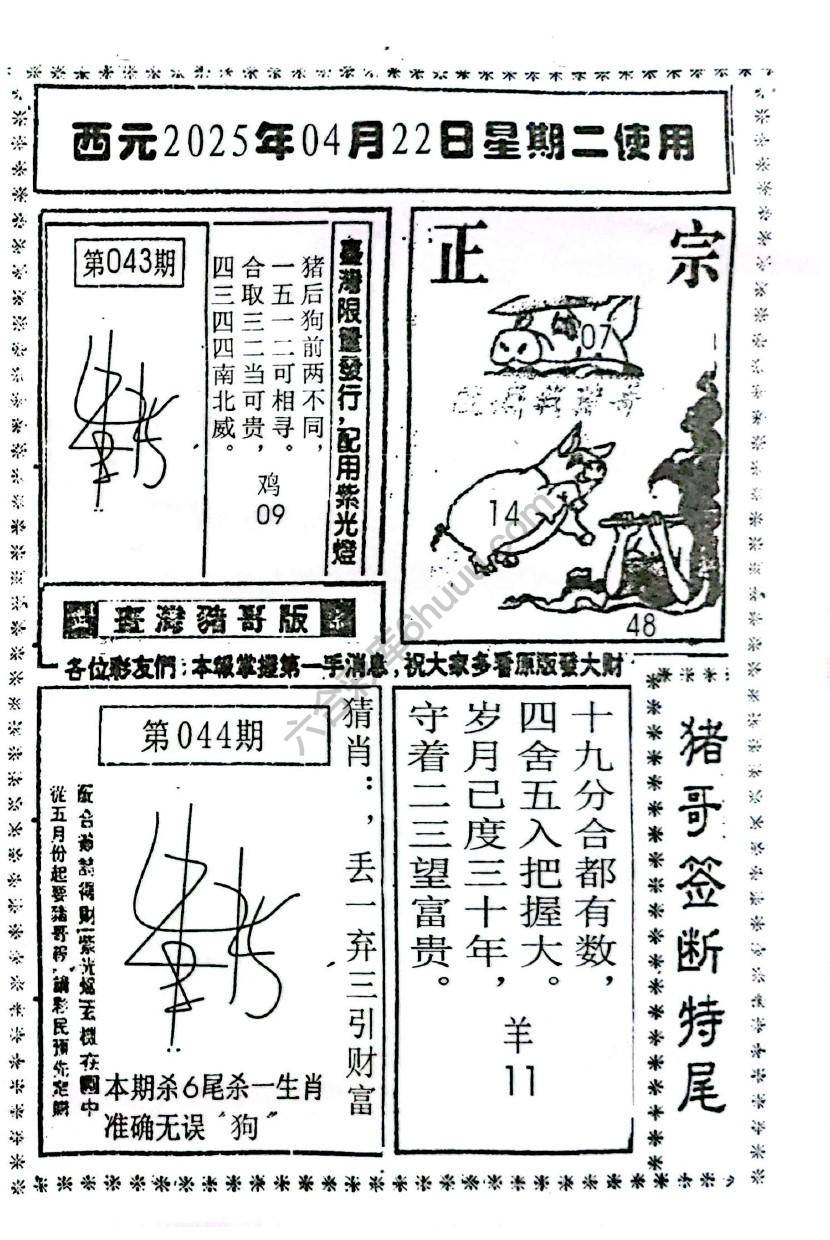 西元2025年04月22日星期二使用
第043期
臺灣限量發行，配用紫光燈
猪后狗前两不同，
一五一二可相寻。
合取三二当可贵，
四三四四南北威。
鸡
09
正 宗
07
14
48
臺灣豬哥版
各位彩友們：本報掌握第一手消息，祝大家多看原版發大財
第044期
猜肖：，丢一弃三引财富
從五月份起要豬哥報
本期杀6尾杀一生肖
准确无误“狗”
十九分合都有数，
四舍五入把握大。
岁月已度三十年，
守着二三望富贵。
羊
11
猪哥签断特尾